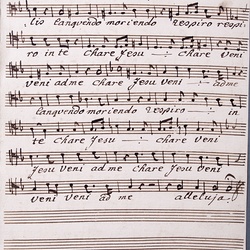 lio languendo moriendo respiro respi:
ro in te chare Jesu chare veni
veni ad me chare Jesu veni ad me
languendo moriendo respiro in
te chare Jesu chare veni
Jesu veni ad me chare Jesu veni
veni veni ad me alleluja